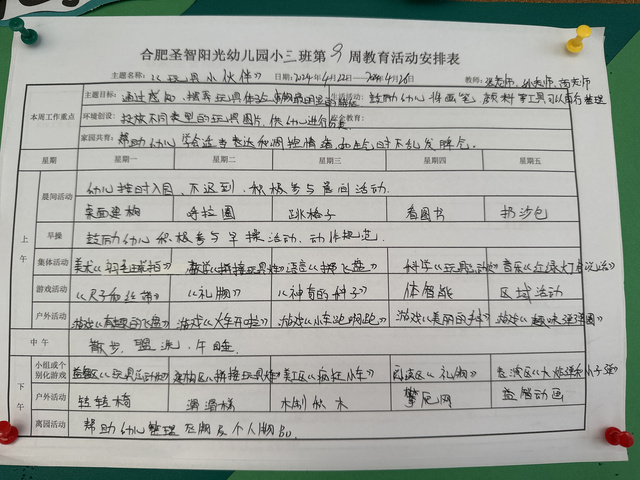 合肥圣智阳光幼儿园小三班第9周教育活动安排表
主题名称:《玩具小伙伴》 日期:2024年4月22日—2024年4月26日 教师:
本周工作重点
主题目标: 通过感知、摆弄玩具体验 生活活动: 鼓励幼儿将画笔、颜料等工具
环境创设: 投放不同类型的玩具图片,供幼儿进行 安全教育:
家园共育: 帮助幼儿学会适当表达和调控情绪, 时不乱发脾气。
星期 星期一 星期二 星期三 星期四 星期五
上午
晨间活动 幼儿按时入园、不迟到、积极参与晨间活动。
桌面建构 呼拉圈 跳格子 看图书 扔沙包
早操 鼓励幼儿积极参与早操活动、动作规范。
集体活动 美术《羽毛球拍》 语言《 飞盘》 科学《玩具 》 音乐《红绿灯 》
游戏活动 《尺子和丝带》 《礼物》 《神奇的种子》 体智能 区域活动
户外活动 游戏《有趣的飞盘》 游戏《火车开啦》 游戏《小车跑啊跑》 游戏《美丽的 》 游戏《趣味 圈》
中午 散步、盥洗、午睡。
下午
小组或个别化游戏 益智区《玩具 》 建构区《拼接玩具 》 美工区《疯狂小车》 《礼物》 表演区《大 小子弹》
户外活动 转转椅 滑滑梯 木制积木 攀爬网 益智动画
离园活动 帮助幼儿整理衣物及个人物品。